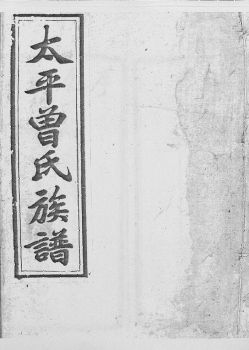 太平曾氏族譜